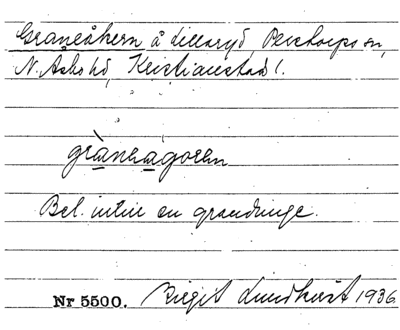 Graneåkern å Lillaryd, Perstorps sn,
N. Åsbo hd, Kristianstad l.
grànẹagorẹn
Bel. intill en grandunge.
Nr 5500. Birgit Lundkvist 1936.